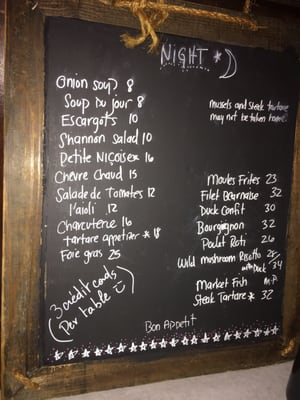 NIGHT *
Onion soup 8
Soup Du jour 8
Escargots 10
Shannon Salad 10
Petite Niçoise 16
Chevre Chaud 15
Salade de Tomates 12
l'aioli 12
Charcuterie 16
tartare appetizer * 18
Foie gras 25
3 credit cards
Per table
mussels and steak tartare
may not be taken home
Moules Frites 23
Filet Bearnaise 32
Duck Confit 30
Bourguignon 32
Poulet Roti 26
Wild mushroom Risotto 28/
with Duck 34
Market Fish M.P.
Steak Tartare * 32
Bon Appetit